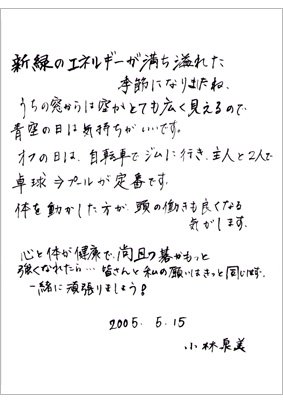 新緑のエネルギーが満ち溢れた
季節になりましたね。
うちの窓からは空がとても広く見えるので、
青空の日は気持ちがいいです。
オフの日は、自転車でジムに行き、主人と2人で
卓球→プールが定番です。
体を動かした方が、頭の働きも良くなる
気がします。
心と体が健康で、尚且つ碁がもっと
強くなれたら…皆さんと私の願いはきっと同じはず。
一緒に頑張りましょう!
2005. 5.15
小林泉美